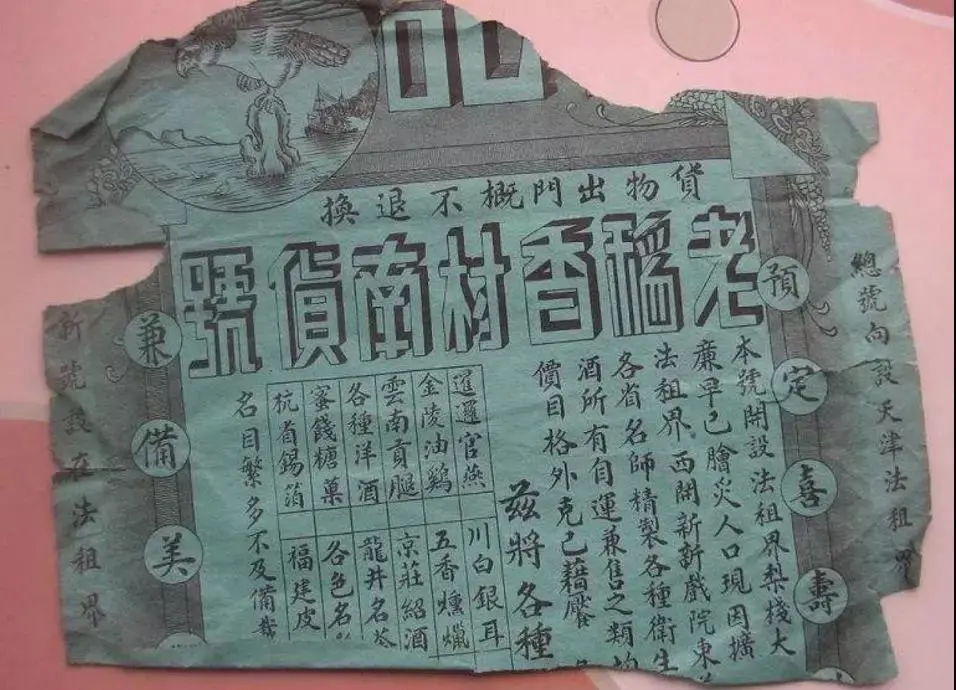 貨物出門概不退換
老稻香村南貨號
總號向設天津法租界
預定喜壽
本號開設法租界梨棧大
廉早已膾災人口現因擴
法租界西開新新戲院東
各省名師精製各種衛生
酒所有自運兼售之類均
價目格外克己藉饜
茲將各種
暹邏官燕 川白銀耳
金陵油鷄 五香燻爉
雲南貢腿 京莊紹酒
各種洋酒 龍井名茶
蜜餞糖菓 各色名
杭省錫箔 福建皮
名目繁多不及備載
兼備美
新號設在法租界